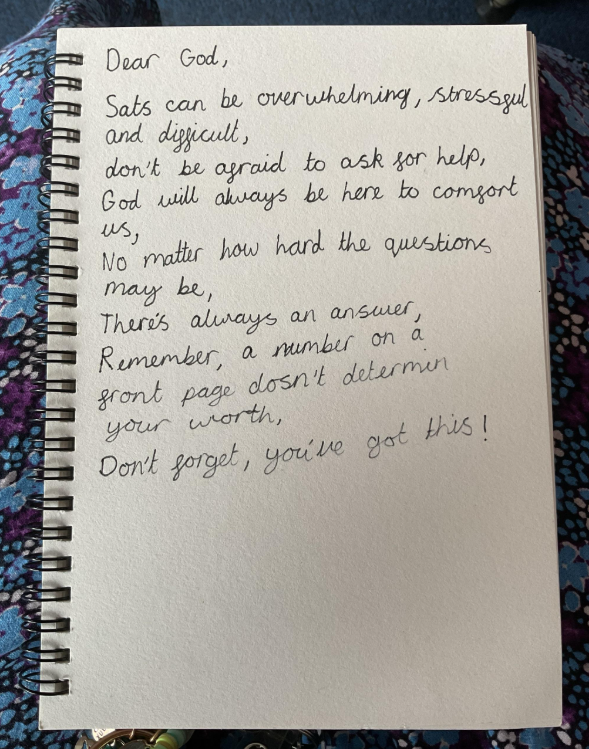 Dear God,
Sats can be overwhelming, stressful
and difficult,
don't be afraid to ask for help,
God will always be here to comfort
us,
No matter how hard the questions
may be,
There's always an answer,
Remember, a number on a
front page dosn't determin
your worth,
Don't forget, you've got this!